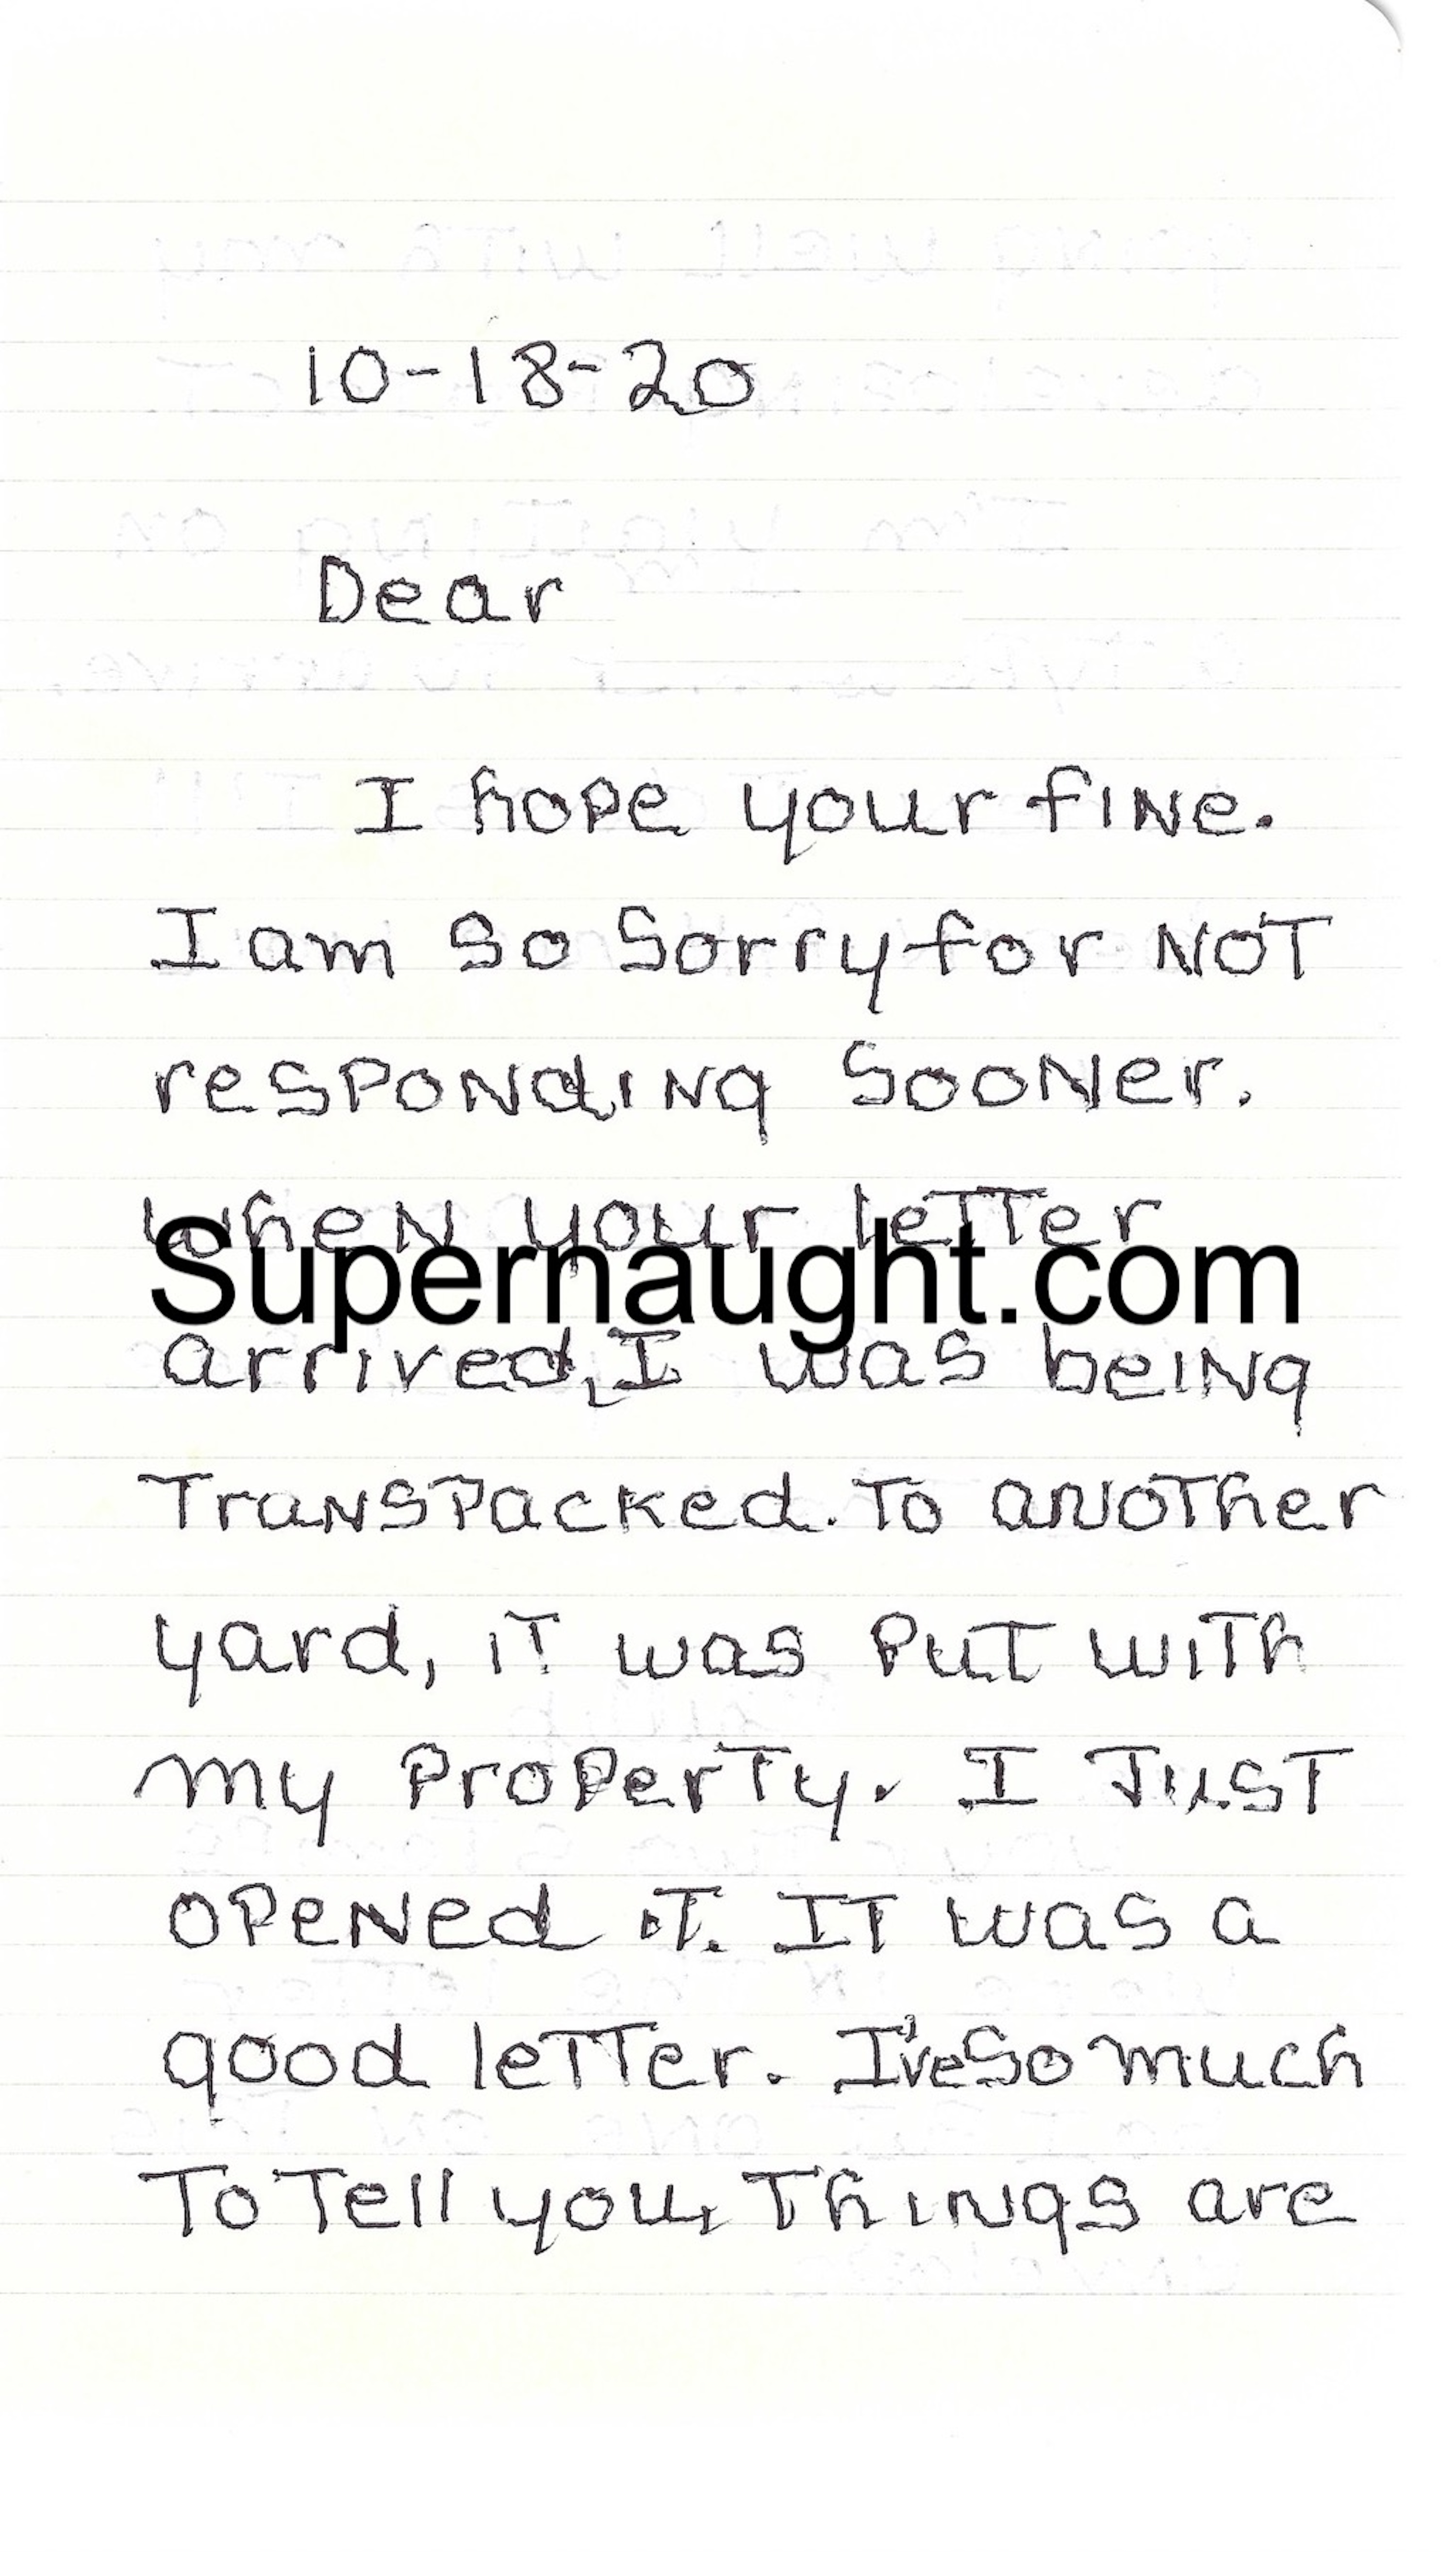 10-18-20
Dear
I hope your fine.
I am so sorry for NOT
responding sooner.
when your letter
Supernaught.com
arrived, I was being
Transpacked. To another
yard, iT was puT wiTh
my properTy. I JusT
opened iT. IT was a
good leTTer. I've so much
To Tell you, Things are